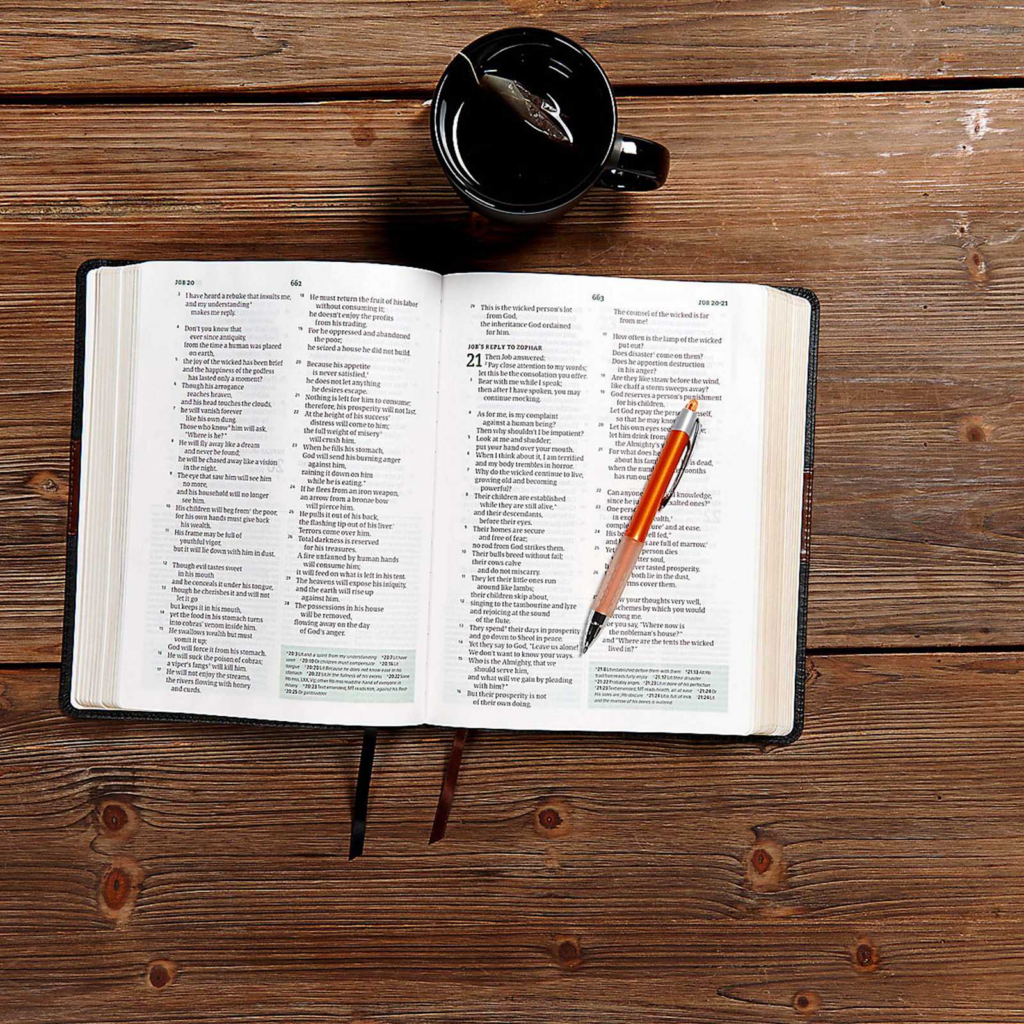 JOB 20
662
3 I have heard a rebuke that insults me,
and my understanding*
makes me reply.
4 Don't you know that
ever since antiquity,
from the time a human was placed
on earth,
5 the joy of the wicked has been brief
and the happiness of the godless
has lasted only a moment?
6 Though his arrogance
reaches heaven,
and his head touches the clouds,
7 he will vanish forever
like his own dung.
Those who know* him will ask,
"Where is he?"
8 He will fly away like a dream
and never be found;
he will be chased away like a vision
in the night.
9 The eye that saw him will see him
no more,
and his household will no longer
see him.
10 His children will beg from* the poor,
for his own hands must give back
his wealth.
11 His frame may be full of
youthful vigor,
but it will lie down with him in dust.
12 Though evil tastes sweet
in his mouth
and he conceals it under his tongue,
13 though he cherishes it and will not
let it go
but keeps it in his mouth,
14 yet the food in his stomach turns
into cobras' venom inside him.
15 He swallows wealth but must
vomit it up;
God will force it from his stomach.
16 He will suck the poison of cobras;
a viper's fangs* will kill him.
17 He will not enjoy the streams,
the rivers flowing with honey
and curds.
18 He must return the fruit of his labor
without consuming it;
he doesn't enjoy the profits
from his trading.
19 For he oppressed and abandoned
the poor;
he seized a house he did not build.
20 Because his appetite
is never satisfied,*
he does not let anything
he desires escape.
21 Nothing is left for him to consume;
therefore, his prosperity will not last.
22 At the height of his success*
distress will come to him;
the full weight of misery*
will crush him.
23 When he fills his stomach,
God will send his burning anger
against him,
raining it down on him
while he is eating.*
24 If he flees from an iron weapon,
an arrow from a bronze bow
will pierce him.
25 He pulls it out of his back,
the flashing tip out of his liver.*
Terrors come over him.
26 Total darkness is reserved
for his treasures.
A fire unfanned by human hands
will consume him;
it will feed on what is left in his tent.
27 The heavens will expose his iniquity,
and the earth will rise up
against him.
28 The possessions in his house
will be removed,
flowing away on the day
of God's anger.
663
JOB 20-21
29 This is the wicked person's lot
from God,
the inheritance God ordained
for him.
JOB'S REPLY TO ZOPHAR
21 Then Job answered:
2 Pay close attention to my words;
let this be the consolation you offer.
3 Bear with me while I speak;
then after I have spoken, you may
continue mocking.
4 As for me, is my complaint
against a human being?
Then why shouldn't I be impatient?
5 Look at me and shudder;
put your hand over your mouth.
6 When I think about it, I am terrified
and my body trembles in horror.
7 Why do the wicked continue to live,
growing old and becoming
powerful?
8 Their children are established
while they are still alive,*
and their descendants,
before their eyes.
9 Their homes are secure
and free of fear;
no rod from God strikes them.
10 Their bulls breed without fail;
their cows calve
and do not miscarry.
11 They let their little ones run
around like lambs;
their children skip about,
12 singing to the tambourine and lyre
and rejoicing at the sound
of the flute.
13 They spend* their days in prosperity
and go down to Sheol in peace.
14 Yet they say to God, "Leave us alone!
We don't want to know your ways.
15 Who is the Almighty, that we
should serve him,
and what will we gain by pleading
with him?"
16 But their prosperity is not
of their own doing.
The counsel of the wicked is far
from me!
17 How often is the lamp of the wicked
put out?
Does disaster* come on them?
Does he apportion destruction
in his anger?
18 Are they like straw before the wind,
like chaff a storm sweeps away?
19 God reserves a person's punishment
for his children.
Let God repay the person himself,
so that he may know
20 Let his own eyes see
let him drink from
the Almighty's
21 For what does he
about his family is dead,
when the number months
has run out?
22 Can anyone knowledge,
since he exalted ones?*
23 One person
in excellent health,*
completely* and at ease.
24 His well fed,*
and are full of marrow.*
25 Yet person dies
bitter soul,
never tasted prosperity.
26 both lie in the dust,
worms cover them.
know your thoughts very well,
schemes by which you would
wrong me.
you say, "Where now is
the nobleman's house?"
and "Where are the tents the wicked
lived in?"